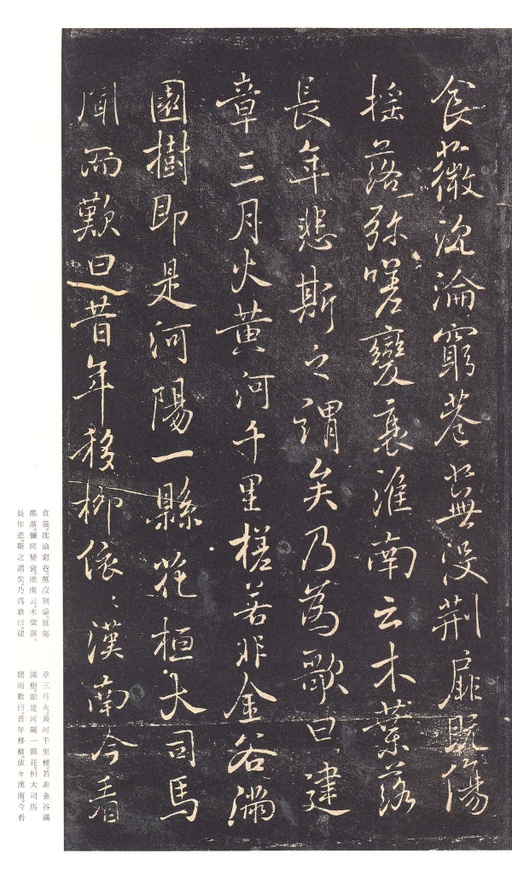 食薇沈淪窮巷蕪没荆扉既傷
揺落弥嗟變衰淮南云木葉落
長年悲斯之謂矣乃為歌曰建
章三月火黄河千里槎若非金谷滿
園樹即是河陽一縣花桓大司馬
聞而歎曰昔年移柳依〻漢南今看
食薇。沈淪窮巷。蕪沒荆扉。既傷
搖落。彌嗟變衰。淮南云。木葉落。
長年悲。斯之謂矣。乃爲歌曰。建
章三月火。黃河千里槎。若非金谷滿
園樹。卽是河陽一縣花。桓大司馬
聞而歎曰。昔年移柳。依々漢南。今看